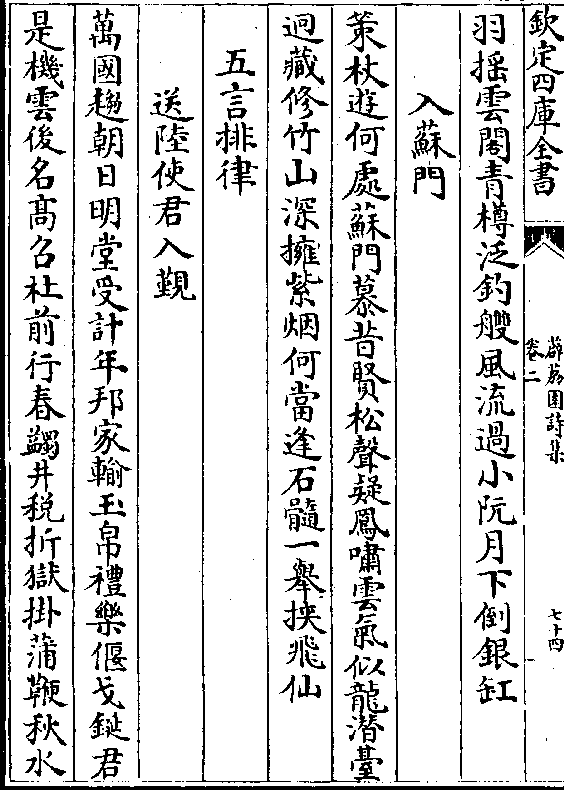 欽定四庫全書
薜荔園詩集
卷二
七十四
羽揺雲閣青樽泛釣艘風流過小阮月下倒銀缸
入蘇門
䇿杖遊何處蘇門慕昔賢松聲疑鳳嘯雲氣似龍潛臺
迥藏修竹山深擁紫烟何當逢石髓一舉挾飛仙
五言排律
送陸使君入覲
萬國趨朝日明堂受計年邦家輸玉帛禮樂偃戈鋋君
是機雲後名髙召杜前行春蠲井税折獄掛蒲鞭秋水